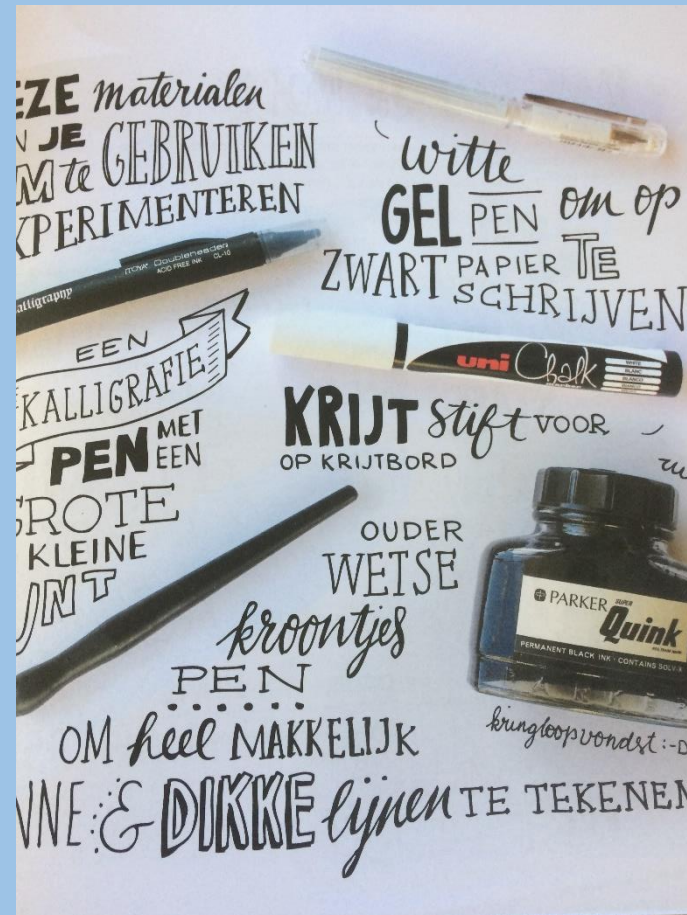 EZE materialen
N JE
M te GEBRUIKEN
XPERIMENTEREN
witte
GEL PEN om op
ZWART PAPIER TE
SCHRIJVEN
alligraphy
Doubleheader
ACID FREE INK CL-10
EEN
KALLIGRAFIE
PEN MET
EEN
ROTE
KLEINE
UNT
uni Chalk
WHITE
BLANC
BLANCO
KRIJT stift VOOR
OP KRIJTBORD
OUDER
WETSE
kroontjes
PEN
OM heel MAKKELIJK
NNE & DIKKE lijnen TE TEKENEN
PARKER SUPER
Quink
PERMANENT BLACK INK · CONTAINS SOLV-X
kringloopvondst :-D